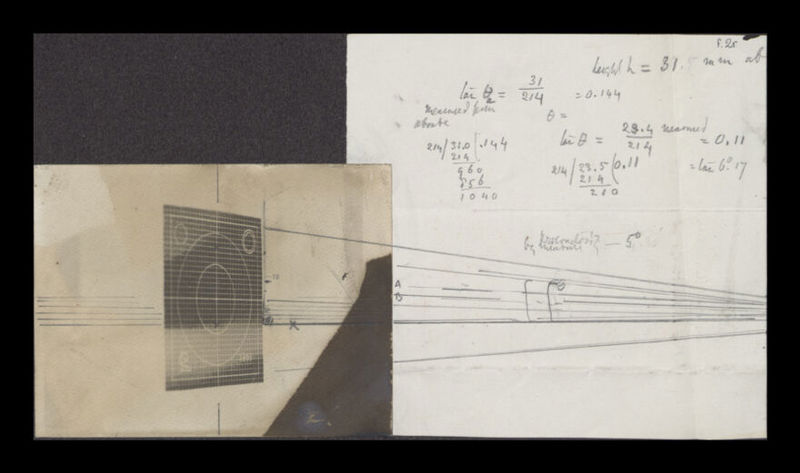 height h = 31. mm ab
tan θ2 = 31/214 = 0.144
measured from
above
θ =
214/31.0(.144
214
960
856
1040
tan θ = 23.4/214 measured = 0.11
214/23.5(0.11
214
210
= tan 6° 17
by
measure — 5°
A
B
θ
X